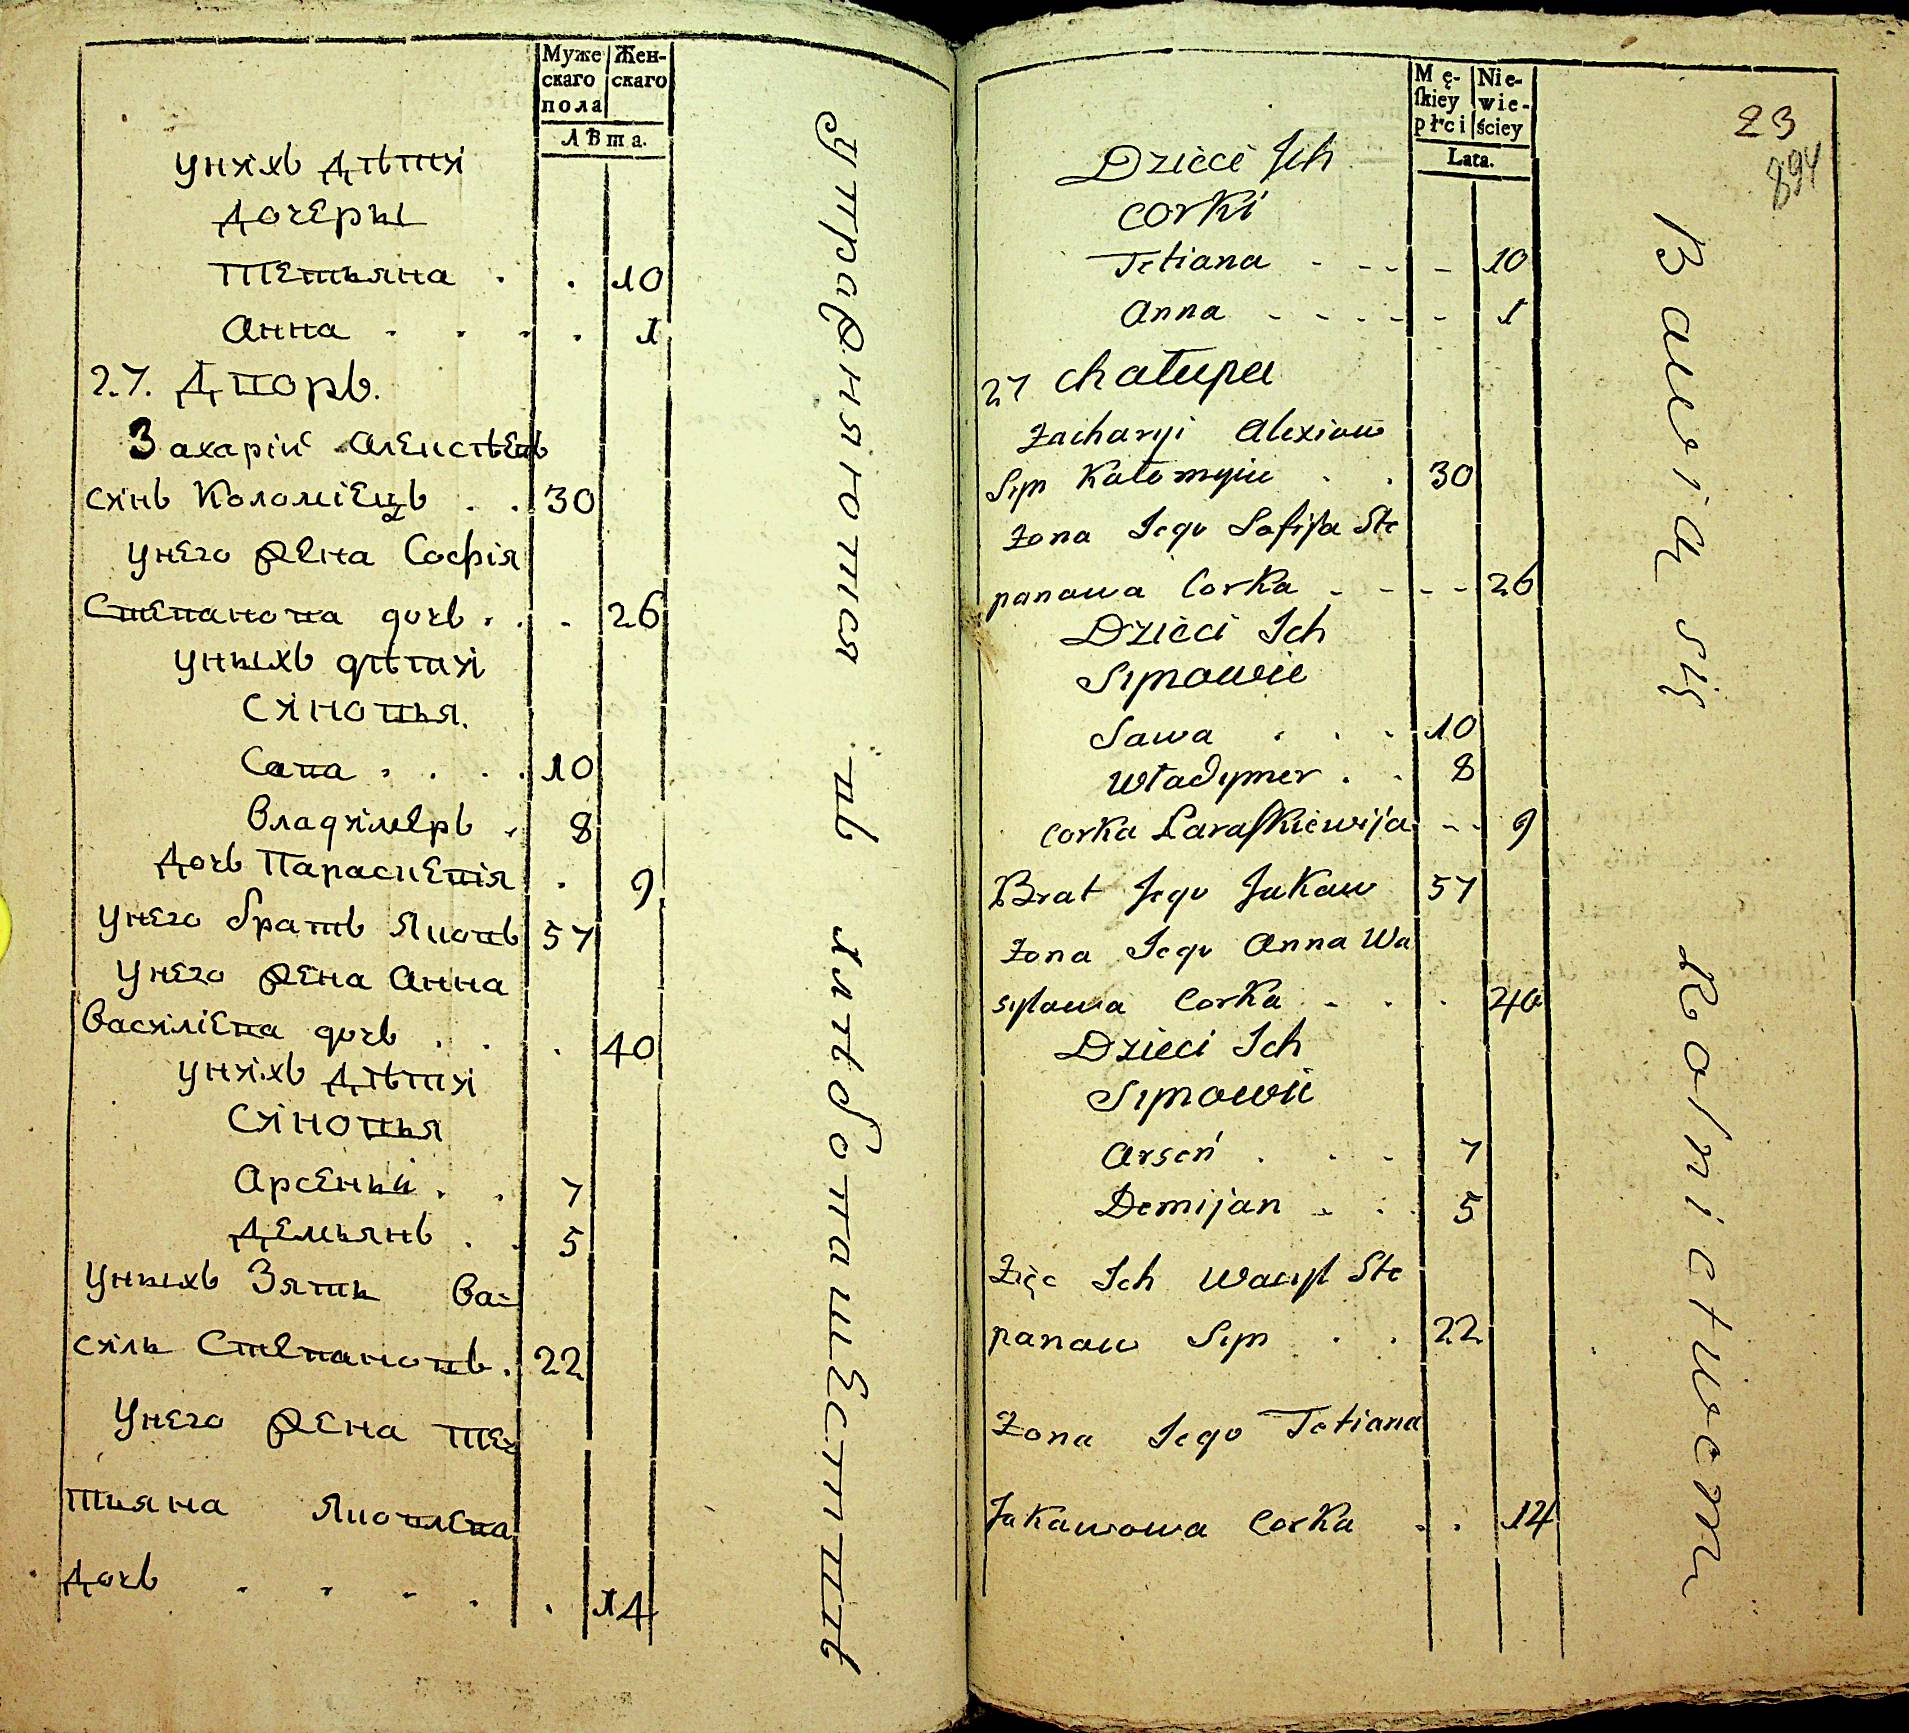 Муже
скаго
пола
Жен-
скаго
Лѣта.
унихъ дѣти
дочеры
Тетьяна . . 10
Анна . . . . . 1
27. Дворъ.
Захарій Алексѣевъ
синъ Коломіецъ . . 30
унего жена Софія
Степанова дочь . . . 26
уныхъ дѣти
Синовья.
Сава . . . . 10
Владимеръ . 8
дочь Параскевія . 9
унего братъ Яковъ 57
унего жена Анна
Василіева дочь . . . 40
унихъ дѣти
Синовья
Арсеньи . . 7
Демьянъ . . 5
уныхъ Зять Ва=
силь Степановъ . 22
унего жена Те
тьяна Яковлева
дочь . . . . . . 14
упражняются въ хлѣбопашествѣ
Mę-
ſkiey
płci
Nie-
wie-
ściey
Lata.
23
894
Dzieci Jch
Corki
Tetiana - - - - 10
Anna - - - - - 1
27 Chałupa
Zacharyi Alexiow
Syn Kołomyiec . . 30
Zona Jego Sofija Ste
panowa Corka - - - - 26
Dzieci Jch
Synowie
Sawa . . . 10
Władymer . . 8
Corka Paraſkiewija - - 9
Brat Jego Jakow 57
Zona Jego Anna Wa
sylowa Corka - . . 40
Dzieci Jch
Synowie
Arsen . . - 7
Demijan . . . 5
Zięc Jch Wasyl Ste
panow Syn . . 22
Zona Jego Tetiana
Jakowowa Corka . . 14
Bawią się Rolnictwem